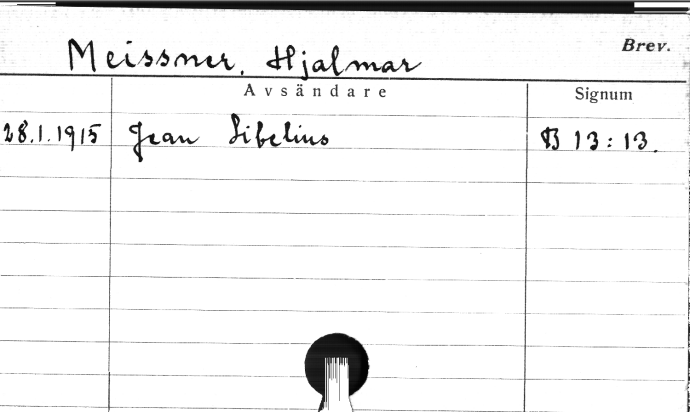 Meissner, Hjalmar Brev.
Avsändare Signum
28.1.1915 Jean Sibelius B 13:13.